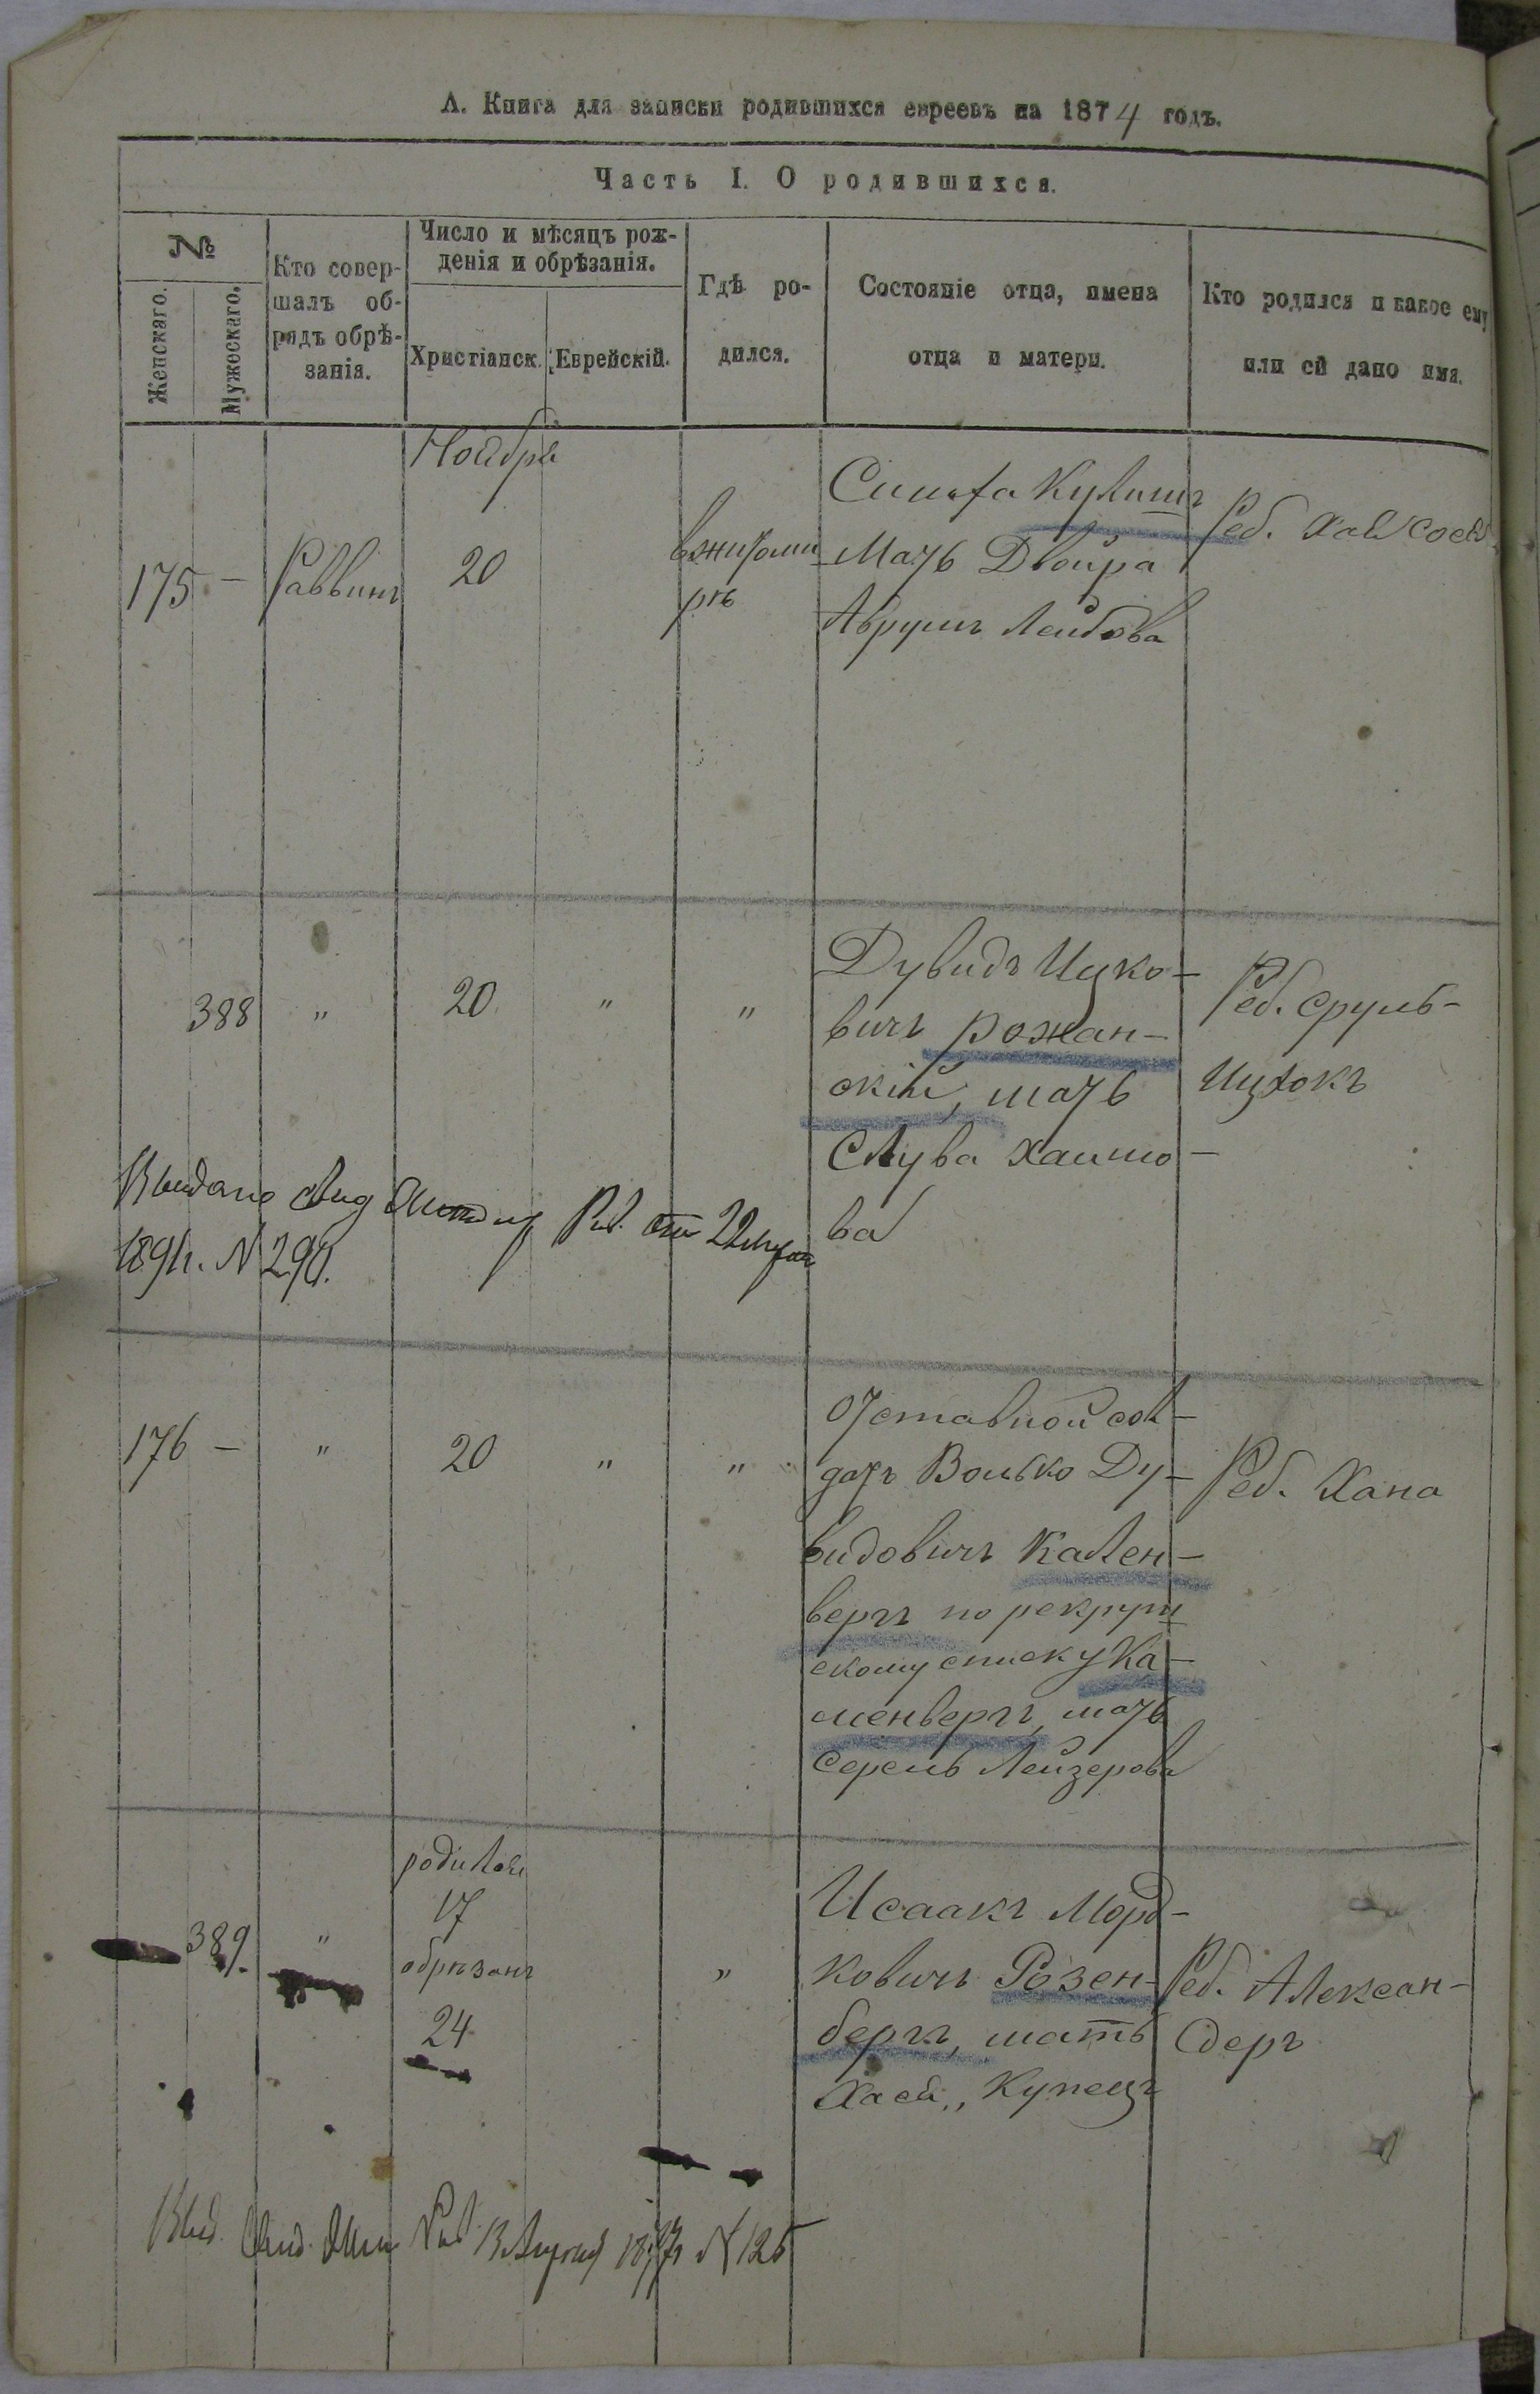 А. Книга для записки родившихся евреевъ на 1874 годъ.
Часть I. О родившихся.
№
Женскаго.
Мужескаго.
Кто совер-
шалъ об-
рядъ обрѣ-
занія.
Число и мѣсяцъ рож-
денія и обрѣзанія.
Христіанск.
Еврейскій.
Гдѣ ро-
дился.
Состояніе отца, имена
отца и матери.
Кто родился и какое ему
или ей дано имя.
Ноября
175 —
Раввинъ
20
в Житоми
рѣ
Симха Кулишъ
Мать Двойра
Аврумъ Лейбова
Реб.
388
"
20
"
"
Дувидъ Ицко-
вичъ Рожан-
скій, мать
Слува Хаимо-
ва
Реб. Сруль-
Ицхокъ
Выдано от 22
189 г. N 290.
176 —
"
20
"
"
Отставной сол-
датъ Волько Ду-
видовичъ Кален-
вергъ по рекрут
скому списку Ка-
менвергъ, мать
Серель Лейзерова
Реб. Хана
389.
"
родился
17
обрѣзанъ
24
"
Исаакъ Морд-
ковичъ Розен-
бергъ, мать
Хася,, Купецъ
Реб. Алексан-
деръ
Выд. Свид. 13 N 125